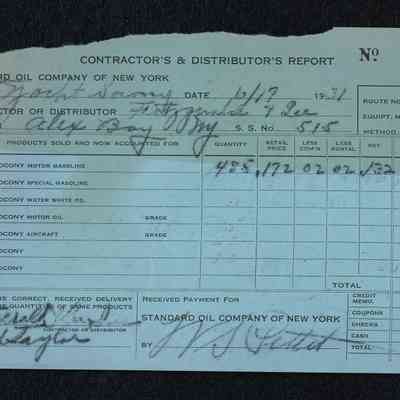 CONTRACTOR'S & DISTRIBUTOR'S REPORT Nº
ARD OIL COMPANY OF NEW YORK
Yacht DATE 6/17 1931
ROUTE NO
CTOR OR DISTRIBUTOR Fitzgerald & Lee
EQUIPT. N
Alex Bay NY S. S. NO. 515
METHOD
PRODUCTS SOLD AND NOW ACCOUNTED FOR QUANTITY RETAIL PRICE LESS COM'N LESS RENTAL NET
OCONY MOTOR GASOLINE 485 .172 02 02 .132
OCONY SPECIAL GASOLINE
OCONY WATER WHITE OIL
OCONY MOTOR OIL GRADE
OCONY AIRCRAFT GRADE
OCONY
OCONY
TOTAL
IS CORRECT, RECEIVED DELIVERY
E QUANTITIES OF SAME PRODUCTS
CONTRACTOR OR DISTRIBUTOR
Taylor
RECEIVED PAYMENT FOR
STANDARD OIL COMPANY OF NEW YORK
BY
CREDIT MEMO.
COUPONS
CHECKS
CASH
TOTAL